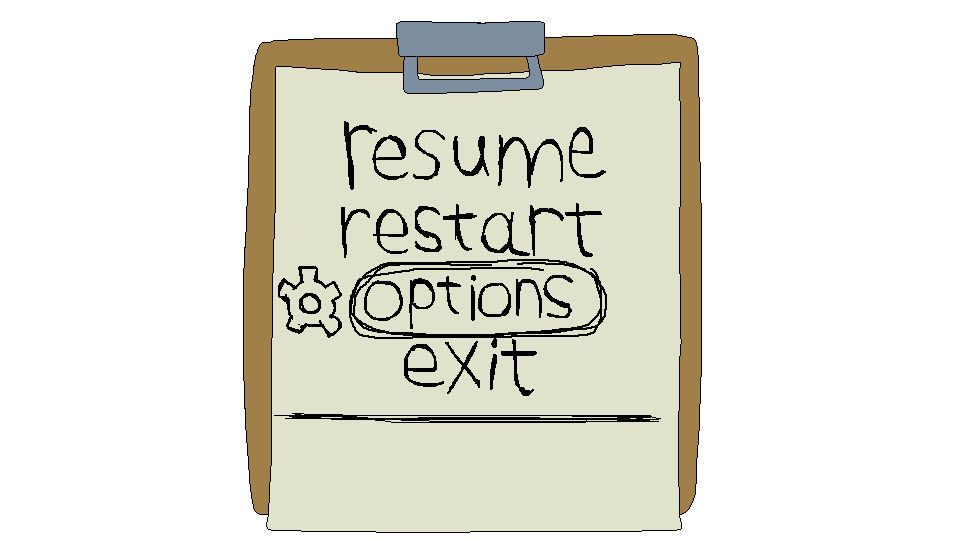 resume
restart
options
exit